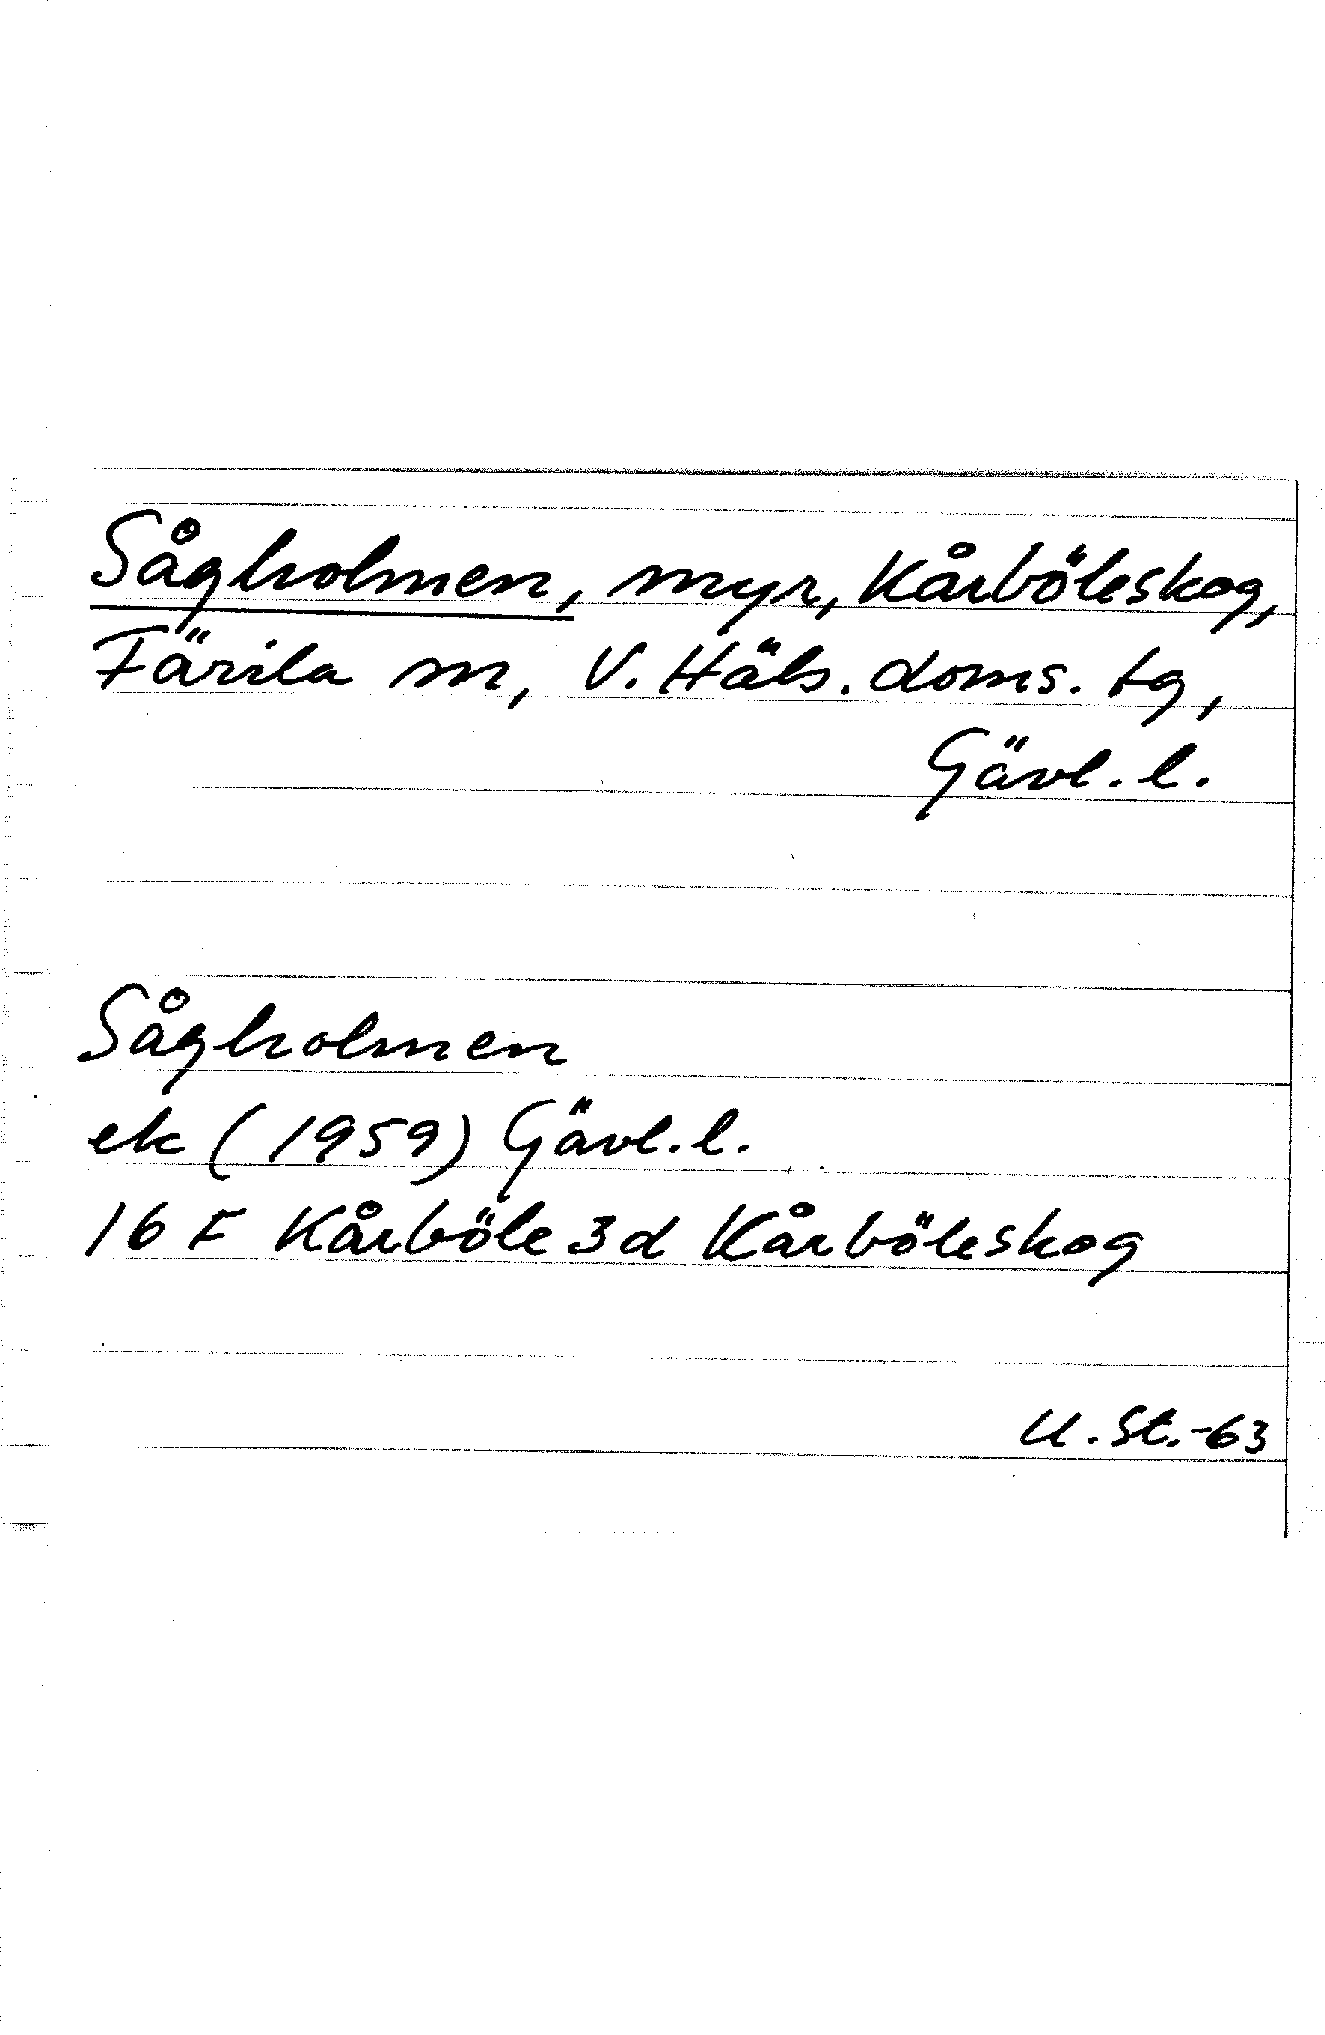 Sågholmen, myr, Kårböleskog,
Färila sn, V. Häls. doms. tg,
Gävl. l.
Sågholmen
ek (1959) Gävl. l.
16 F Kårböle 3d Kårböleskog
U. St. -63